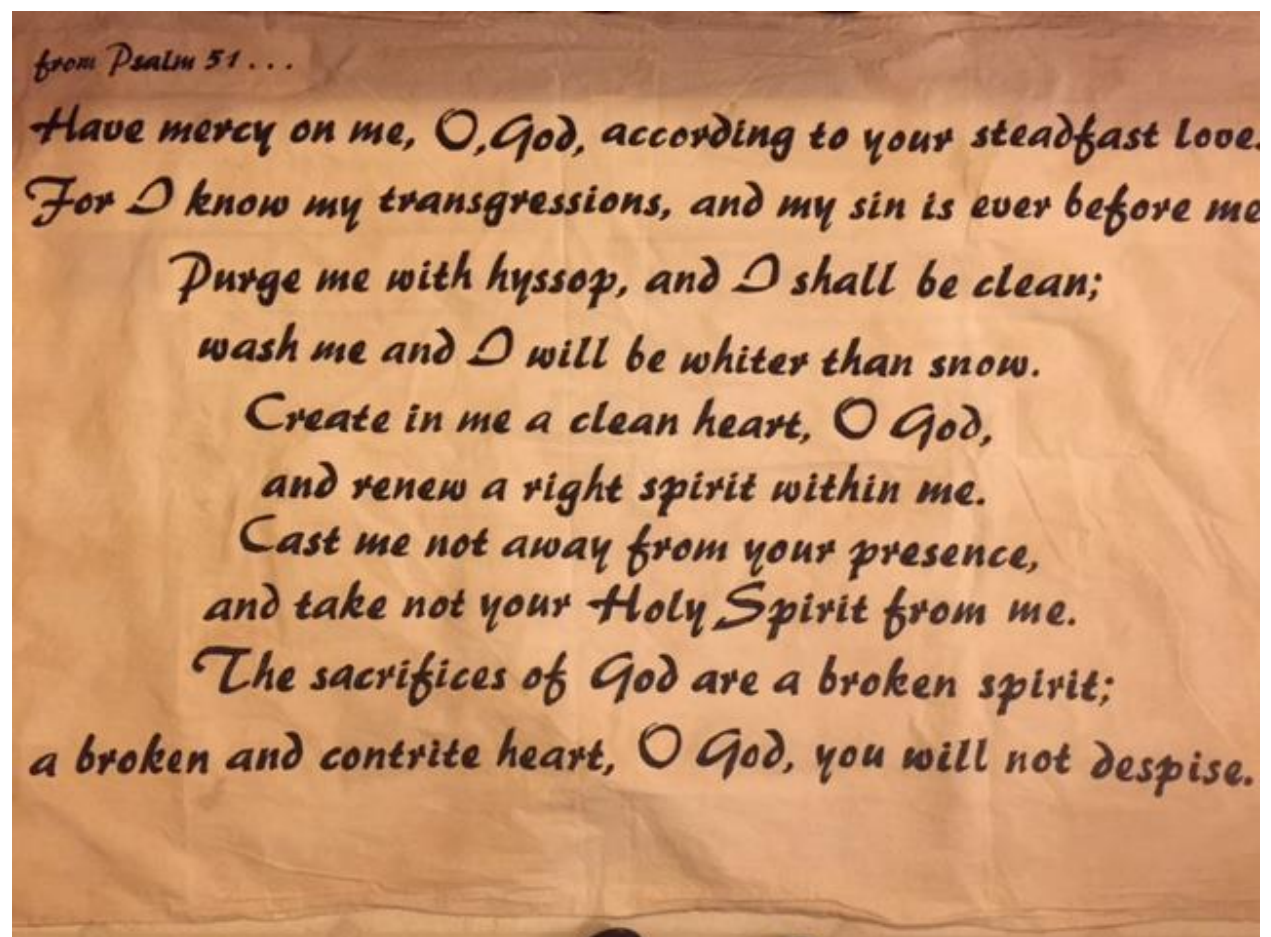 from Psalm 51...
Have mercy on me, O, God, according to your steadfast love.
For I know my transgressions, and my sin is ever before me
Purge me with hyssop, and I shall be clean;
wash me and I will be whiter than snow.
Create in me a clean heart, O God,
and renew a right spirit within me.
Cast me not away from your presence,
and take not your Holy Spirit from me.
The sacrifices of God are a broken spirit;
a broken and contrite heart, O God, you will not despise.